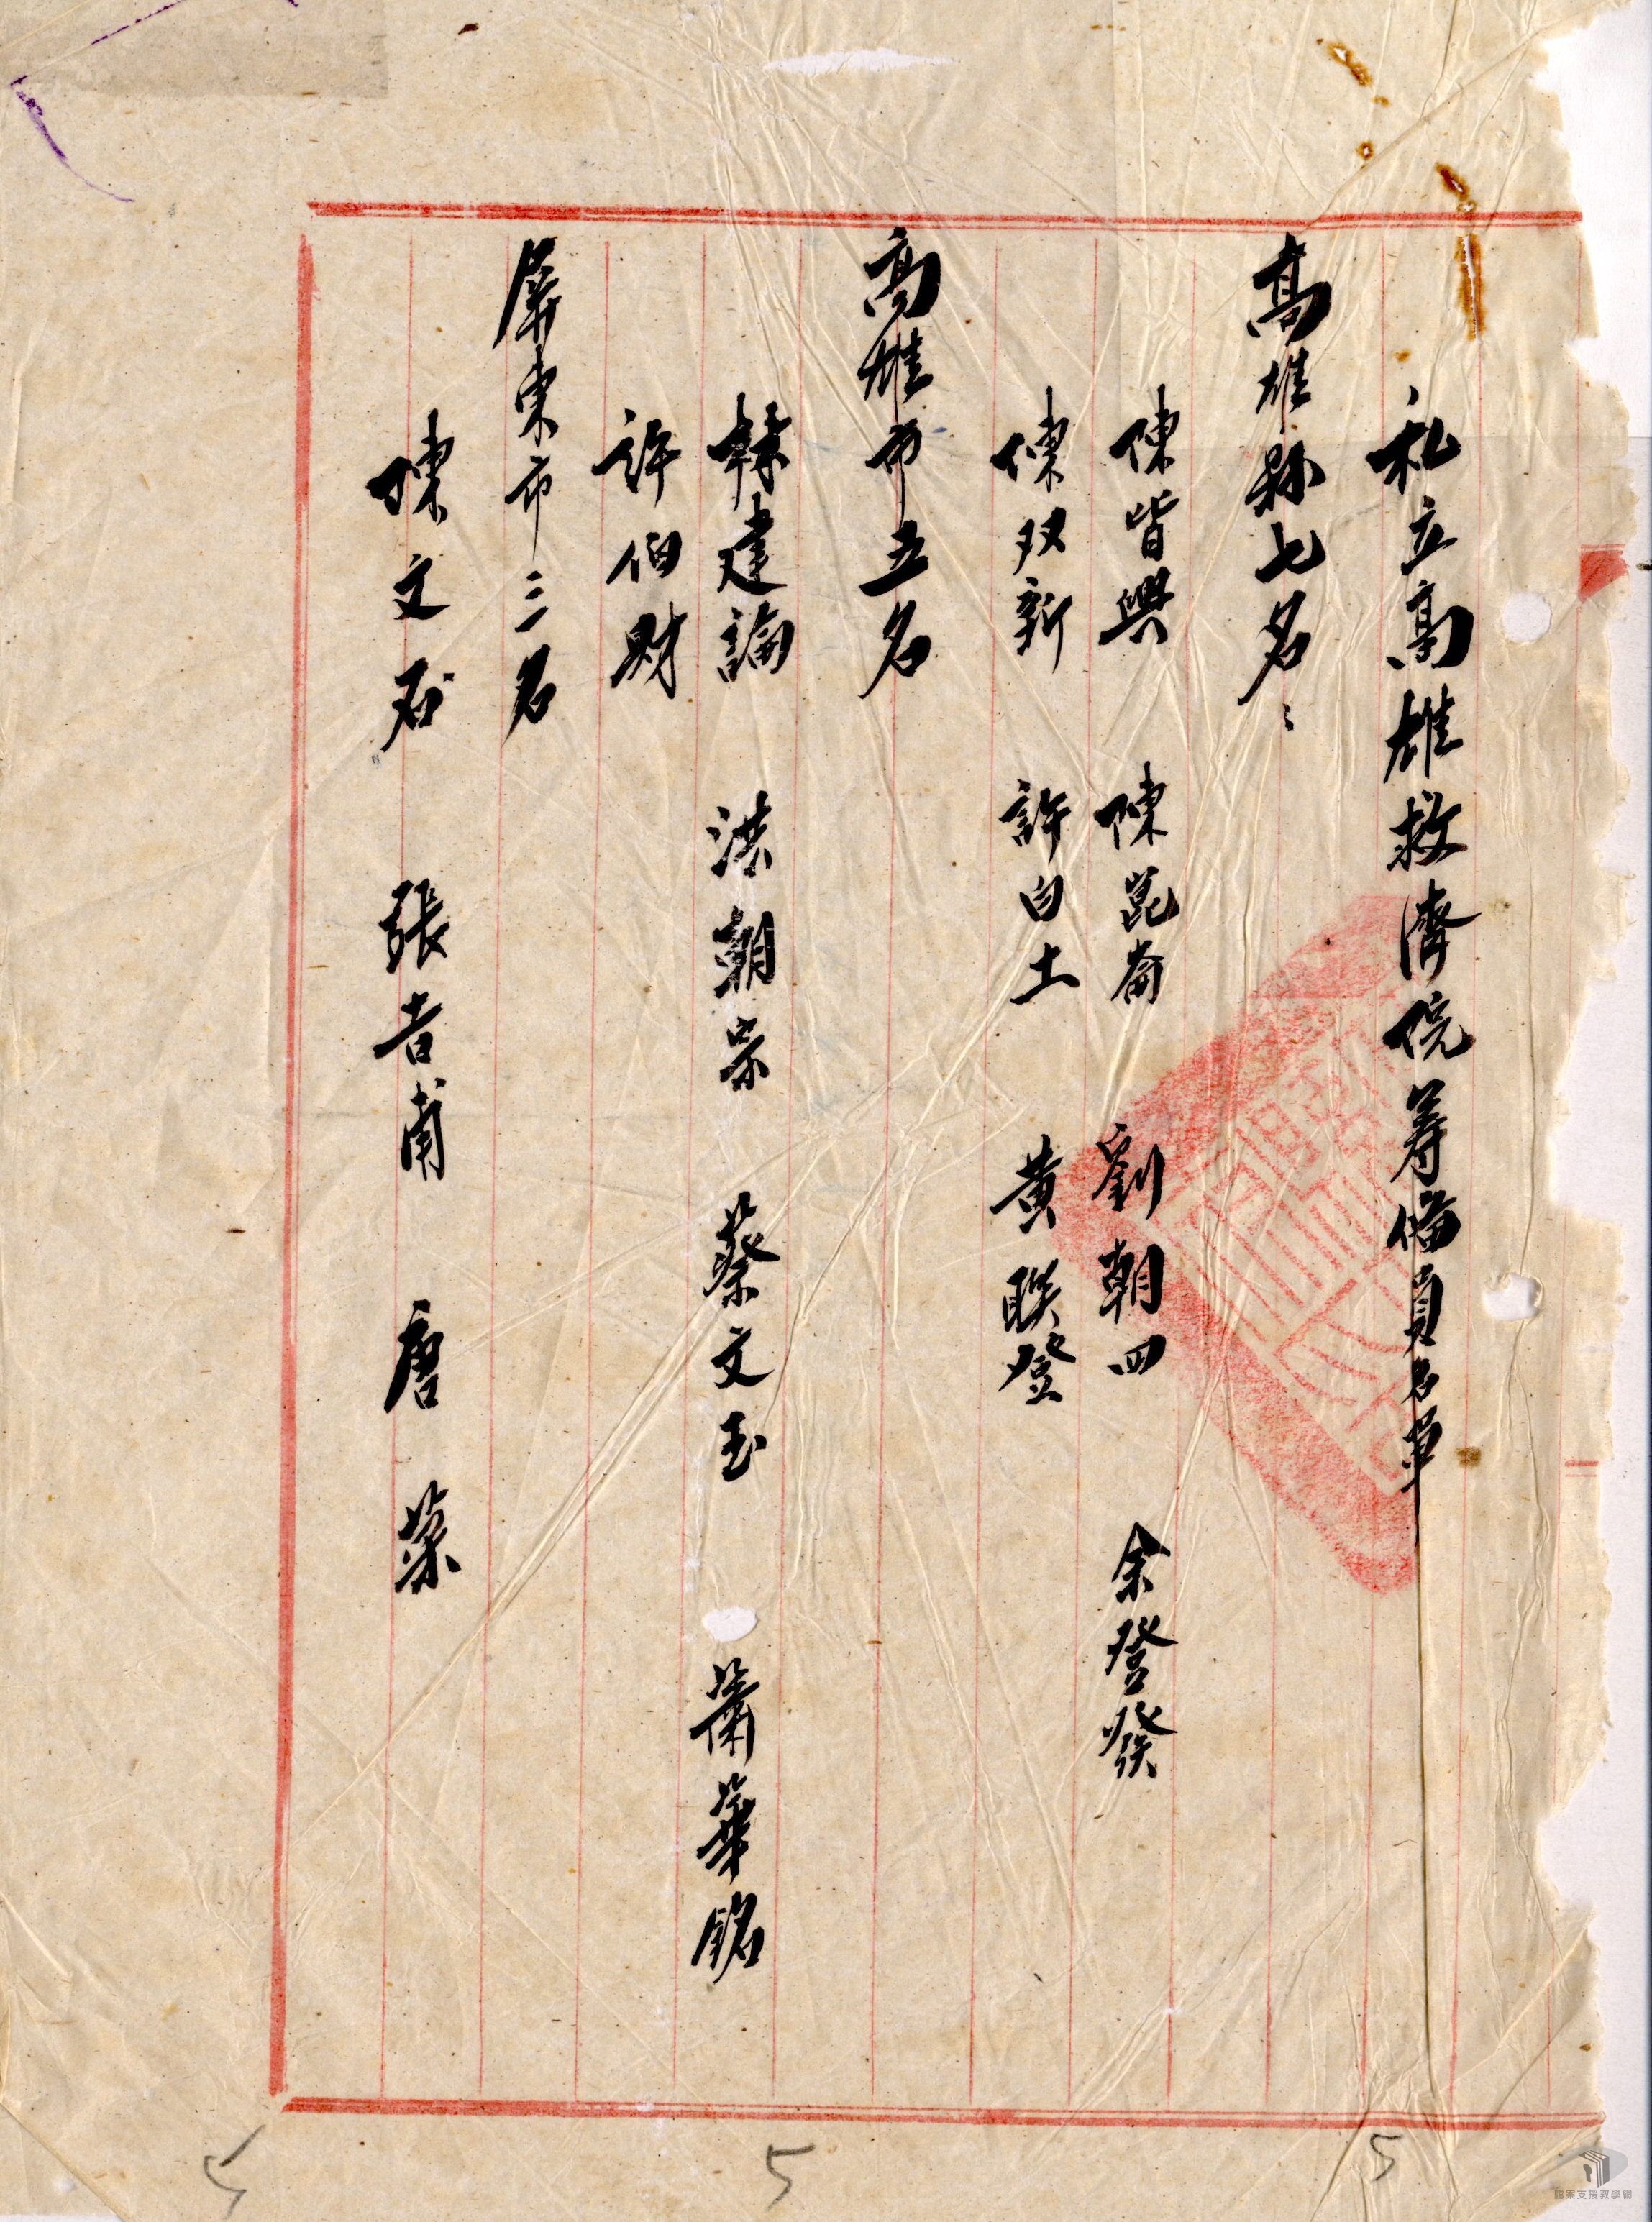 私立高雄救濟院籌備員名單
高雄縣七名
陳皆興 陳崑崙 劉朝四 余登發
陳双新 許白土 黃联登
高雄市五名
林建論 洪朝宗 蔡文玉 蕭華銘
許伯財
屏東市三名
陳文石 張吉甫 唐葉
5 5 5
檔案支援教學網